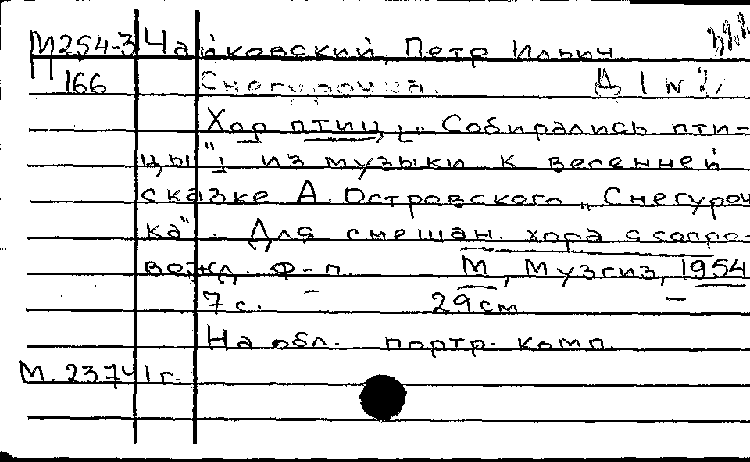 М254-3 Чайковский, Петр Ильич
П 166 Снегурочка. Д 1 N 2
Хор птиц „Собирались пти-
цы"; из музыки к весенней
сказке А. Островского „Снегуроч
ка". Для смешан. хора с сопро-
вожд. ф-п. М., Музгиз, 1954
7 с. 29 см
На обл. портр. комп.
М. 23741г.